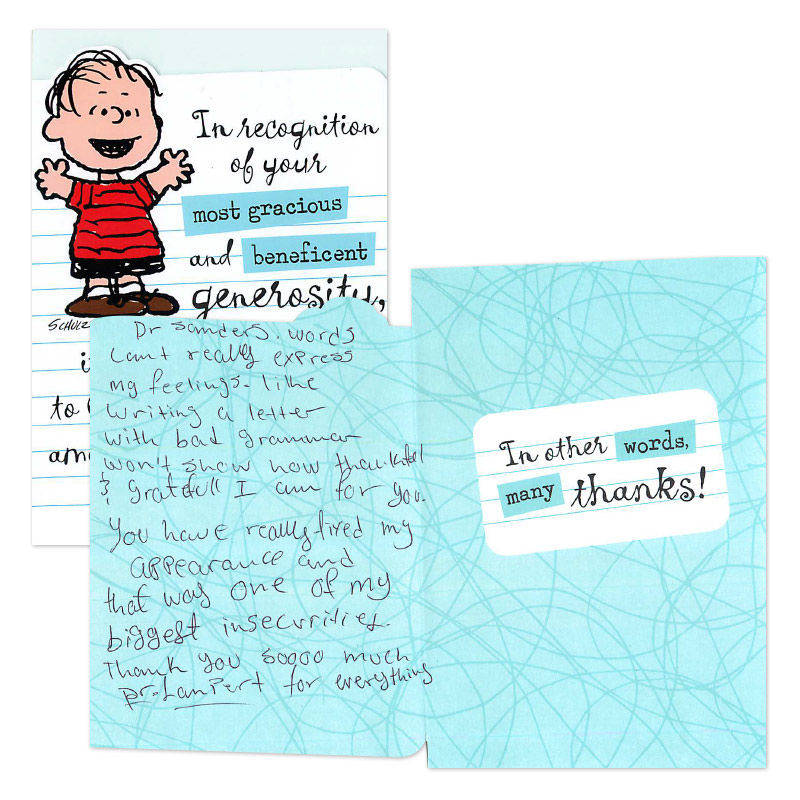 In recognition
of your
most gracious
and beneficent
generosity,
SCHULZ
i
to
am
Dr Sanders. words
Cant really express
my feelings. like
writing a letter
with bad grammar
won't show how thankfull
& gratefull I am for you.
You have really fixed my
appearance and
that was one of my
biggest insecurities.
Thank you soooo much
Dr. Lampert for everything
In other words,
many thanks!